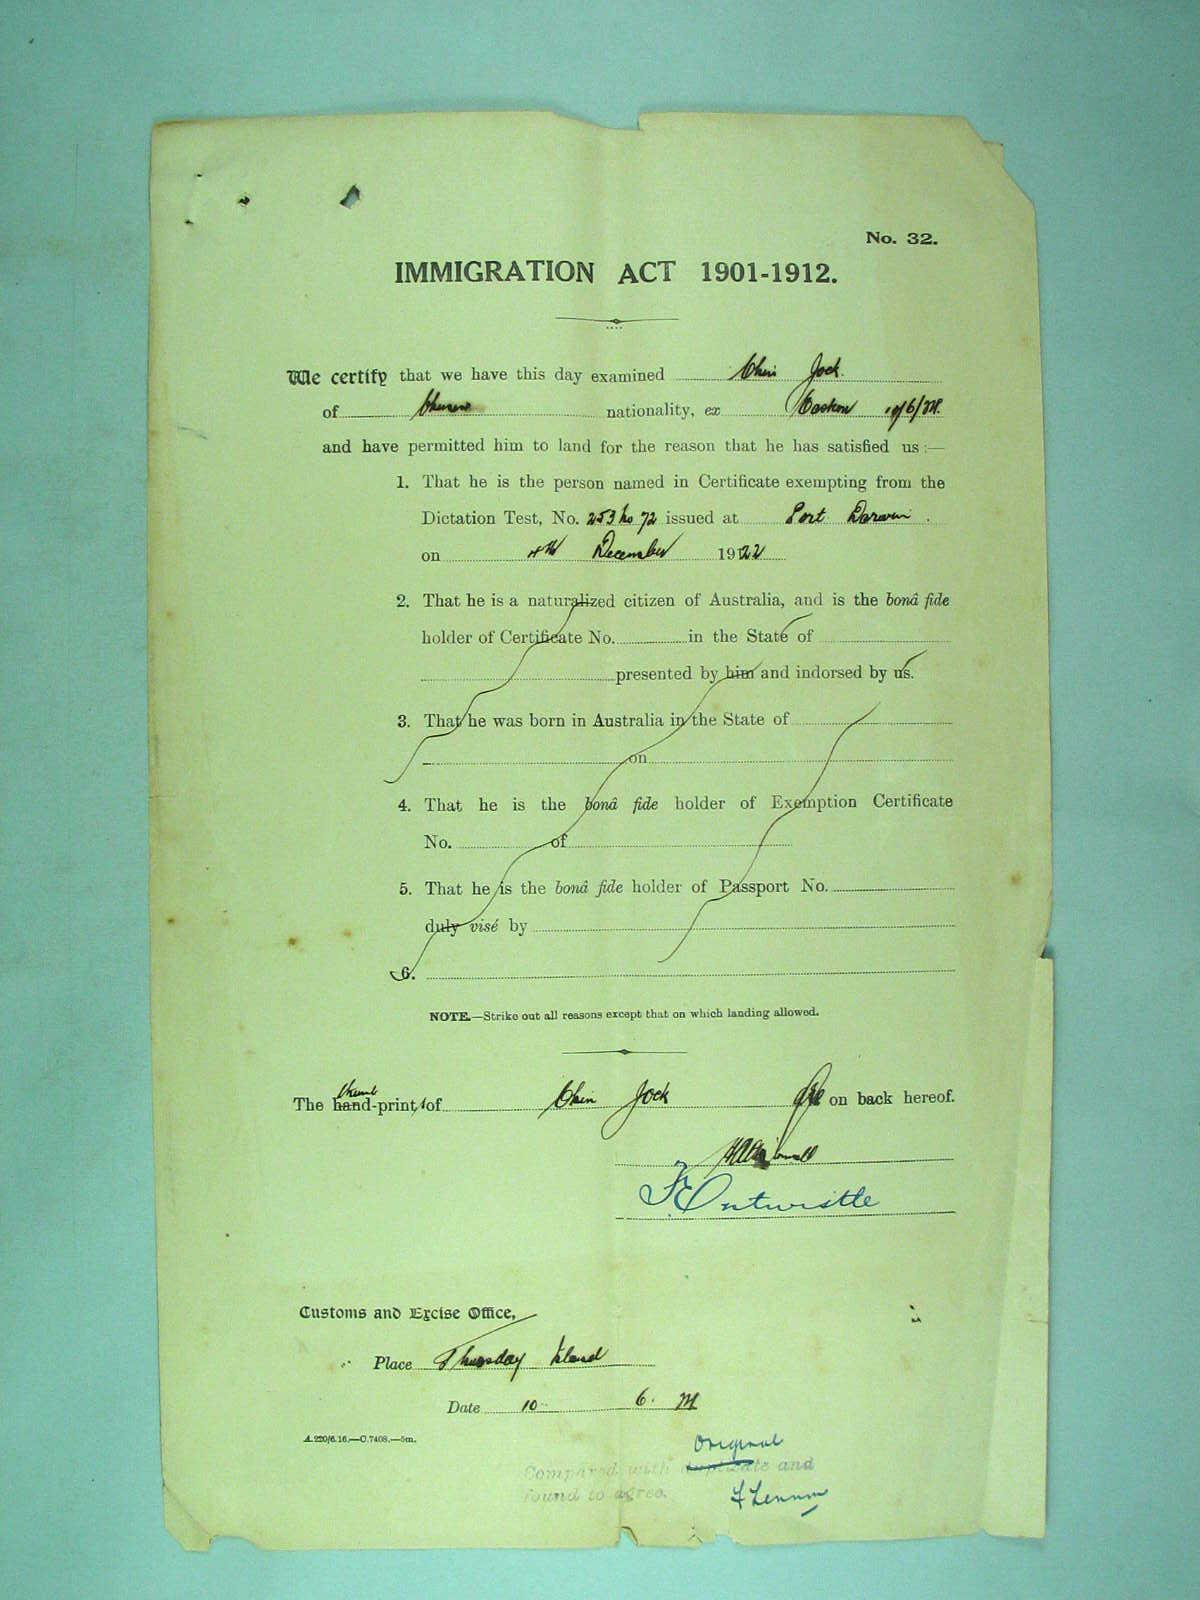 No. 32.
IMMIGRATION ACT 1901-1912.
We certify that we have this day examined Chin Jock
of Chinese nationality, ex
and have permitted him to land for the reason that he has satisfied us :—
1. That he is the person named in Certificate exempting from the
Dictation Test, No. issued at Port Darwin.
on 4th December 1922
2. That he is a naturalized citizen of Australia, and is the bonâ fide
holder of Certificate No. in the State of
presented by him and indorsed by us.
3. That he was born in Australia in the State of
on
4. That he is the bonâ fide holder of Exemption Certificate
No. of
5. That he is the bonâ fide holder of Passport No.
duly visé by
6.
NOTE.—Strike out all reasons except that on which landing allowed.
thumb
The hand-print of Chin Jock are on back hereof.
F Entwistle
Customs and Excise Office,
Place Thursday Island
Date 10 6.
A.220/6.16.—C.7408.—5m.
Original
Compared with duplicate and
found to agree.
F Lennon